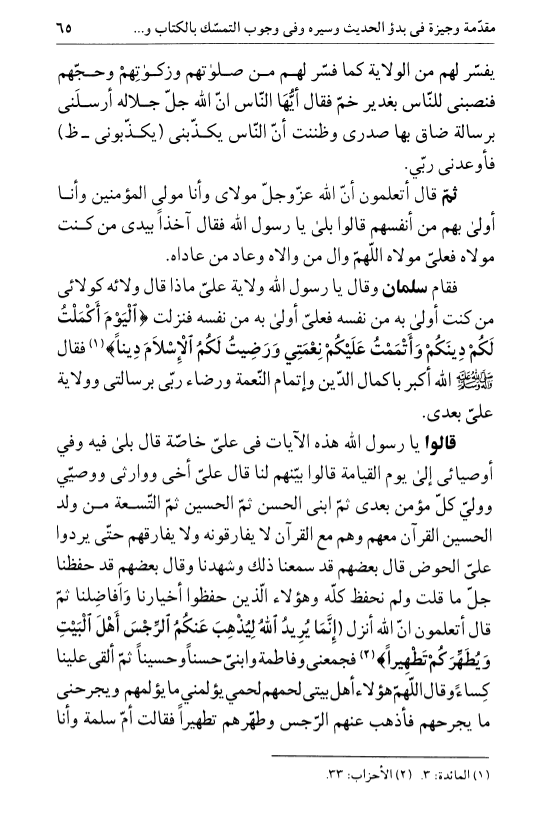 مقدّمة وجيزة فى بدؤ الحديث وسيره وفى وجوب التمسّك بالكتاب و... ٦٥
يفسّر لهم من الولاية كما فسّر لهـم مـن صلـوٰتهم وزكـوٰتهِمْ وحجّهم
فنصبنى للنّاس بغدير خمّ فقال أيُّهَا النّاس انّ الله جلّ جلاله أرسلَنى
برسالة ضاق بها صدرى وظننت أنّ النّاس يكـذّبنى (يكـذّبونى ـ ظ)
فأوعدنى ربّي.
ثمّ قال أتعلمون أنّ الله عزّوجلّ مولاى وأنا مولى المؤمنين وأنـا
أولىٰ بهم من أنفسهم قالوا بلىٰ يا رسول الله فقال آخذاً بيدى من كنت
مولاه فعلىّ مولاه اللّهمّ وال من والاه وعاد من عاداه.
فقام سلمان وقال يا رسول الله ولاية علىّ ماذا قال ولائه كولائى
من كنت أولىٰ به من نفسه فعلىّ أولىٰ به من نفسه فنزلت ﴿ٱلْيَوْمَ أَكْمَلْتُ
لَكُمْ دِينَكُمْ وَأَتْمَمْتُ عَلَيْكُمْ نِعْمَتِي وَرَضِيتُ لَكُمُ ٱلْإِسْلَامَ دِيناً﴾(١) فقال
ﷺ الله أكبر باكمال الدّين وإتمام النّعمة ورضاء ربّى برسالتى وولاية
علىّ بعدى.
قالوا يا رسول الله هذه الآيات فى علىّ خاصّة قال بلىٰ فيه وفي
أوصيائى إلىٰ يوم القيامة قالوا بيّنهم لنا قال علىّ أخى ووارثى ووصيّي
ووليّ كلّ مؤمن بعدى ثمّ ابنى الحسن ثمّ الحسين ثمّ التّسعة مـن ولد
الحسين القرآن معهم وهم مع القرآن لا يفارقونه ولا يفارقهم حتّى يردوا
علىّ الحوض قال بعضهم قد سمعنا ذلك وشهدنا وقال بعضهم قد حفظنا
جلّ ما قلت ولم نحفظ كلّه وهؤلاء الّذين حفظوا أخيارنا وَأفاضِلنا ثمّ
قال أتعلمون انّ الله أنزل (إِنَّمَا يُرِيدُ ٱللهُ لِيُذْهِبَ عَنكُمُ ٱلرِّجْسَ أَهْلَ ٱلْبَيْتِ
وَيُطَهِّرَكُمْ تَطْهِيراً﴾(٢) فجمعنى وفاطمة وابنىّ حسناً وحسيناً ثمّ ألقى علينا
كِساءً وقال اللّهمّ هؤلاء أهل بيتى لحمهم لحمي يؤلمني ما يؤلمهم ويجرحنى
ما يجرحهم فأذهب عنهم الرّجس وطهّرهم تطهيراً فقالت أمّ سلمة وأنا
(١) المائدة: ٣. (٢) الأحزاب: ٣٣.